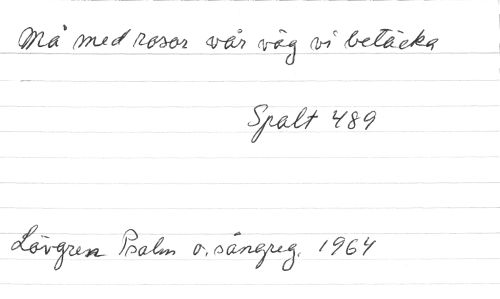 Må med rosor vår väg vi betäcka
Spalt 489
Lövgren Psalm o. sångreg. 1964